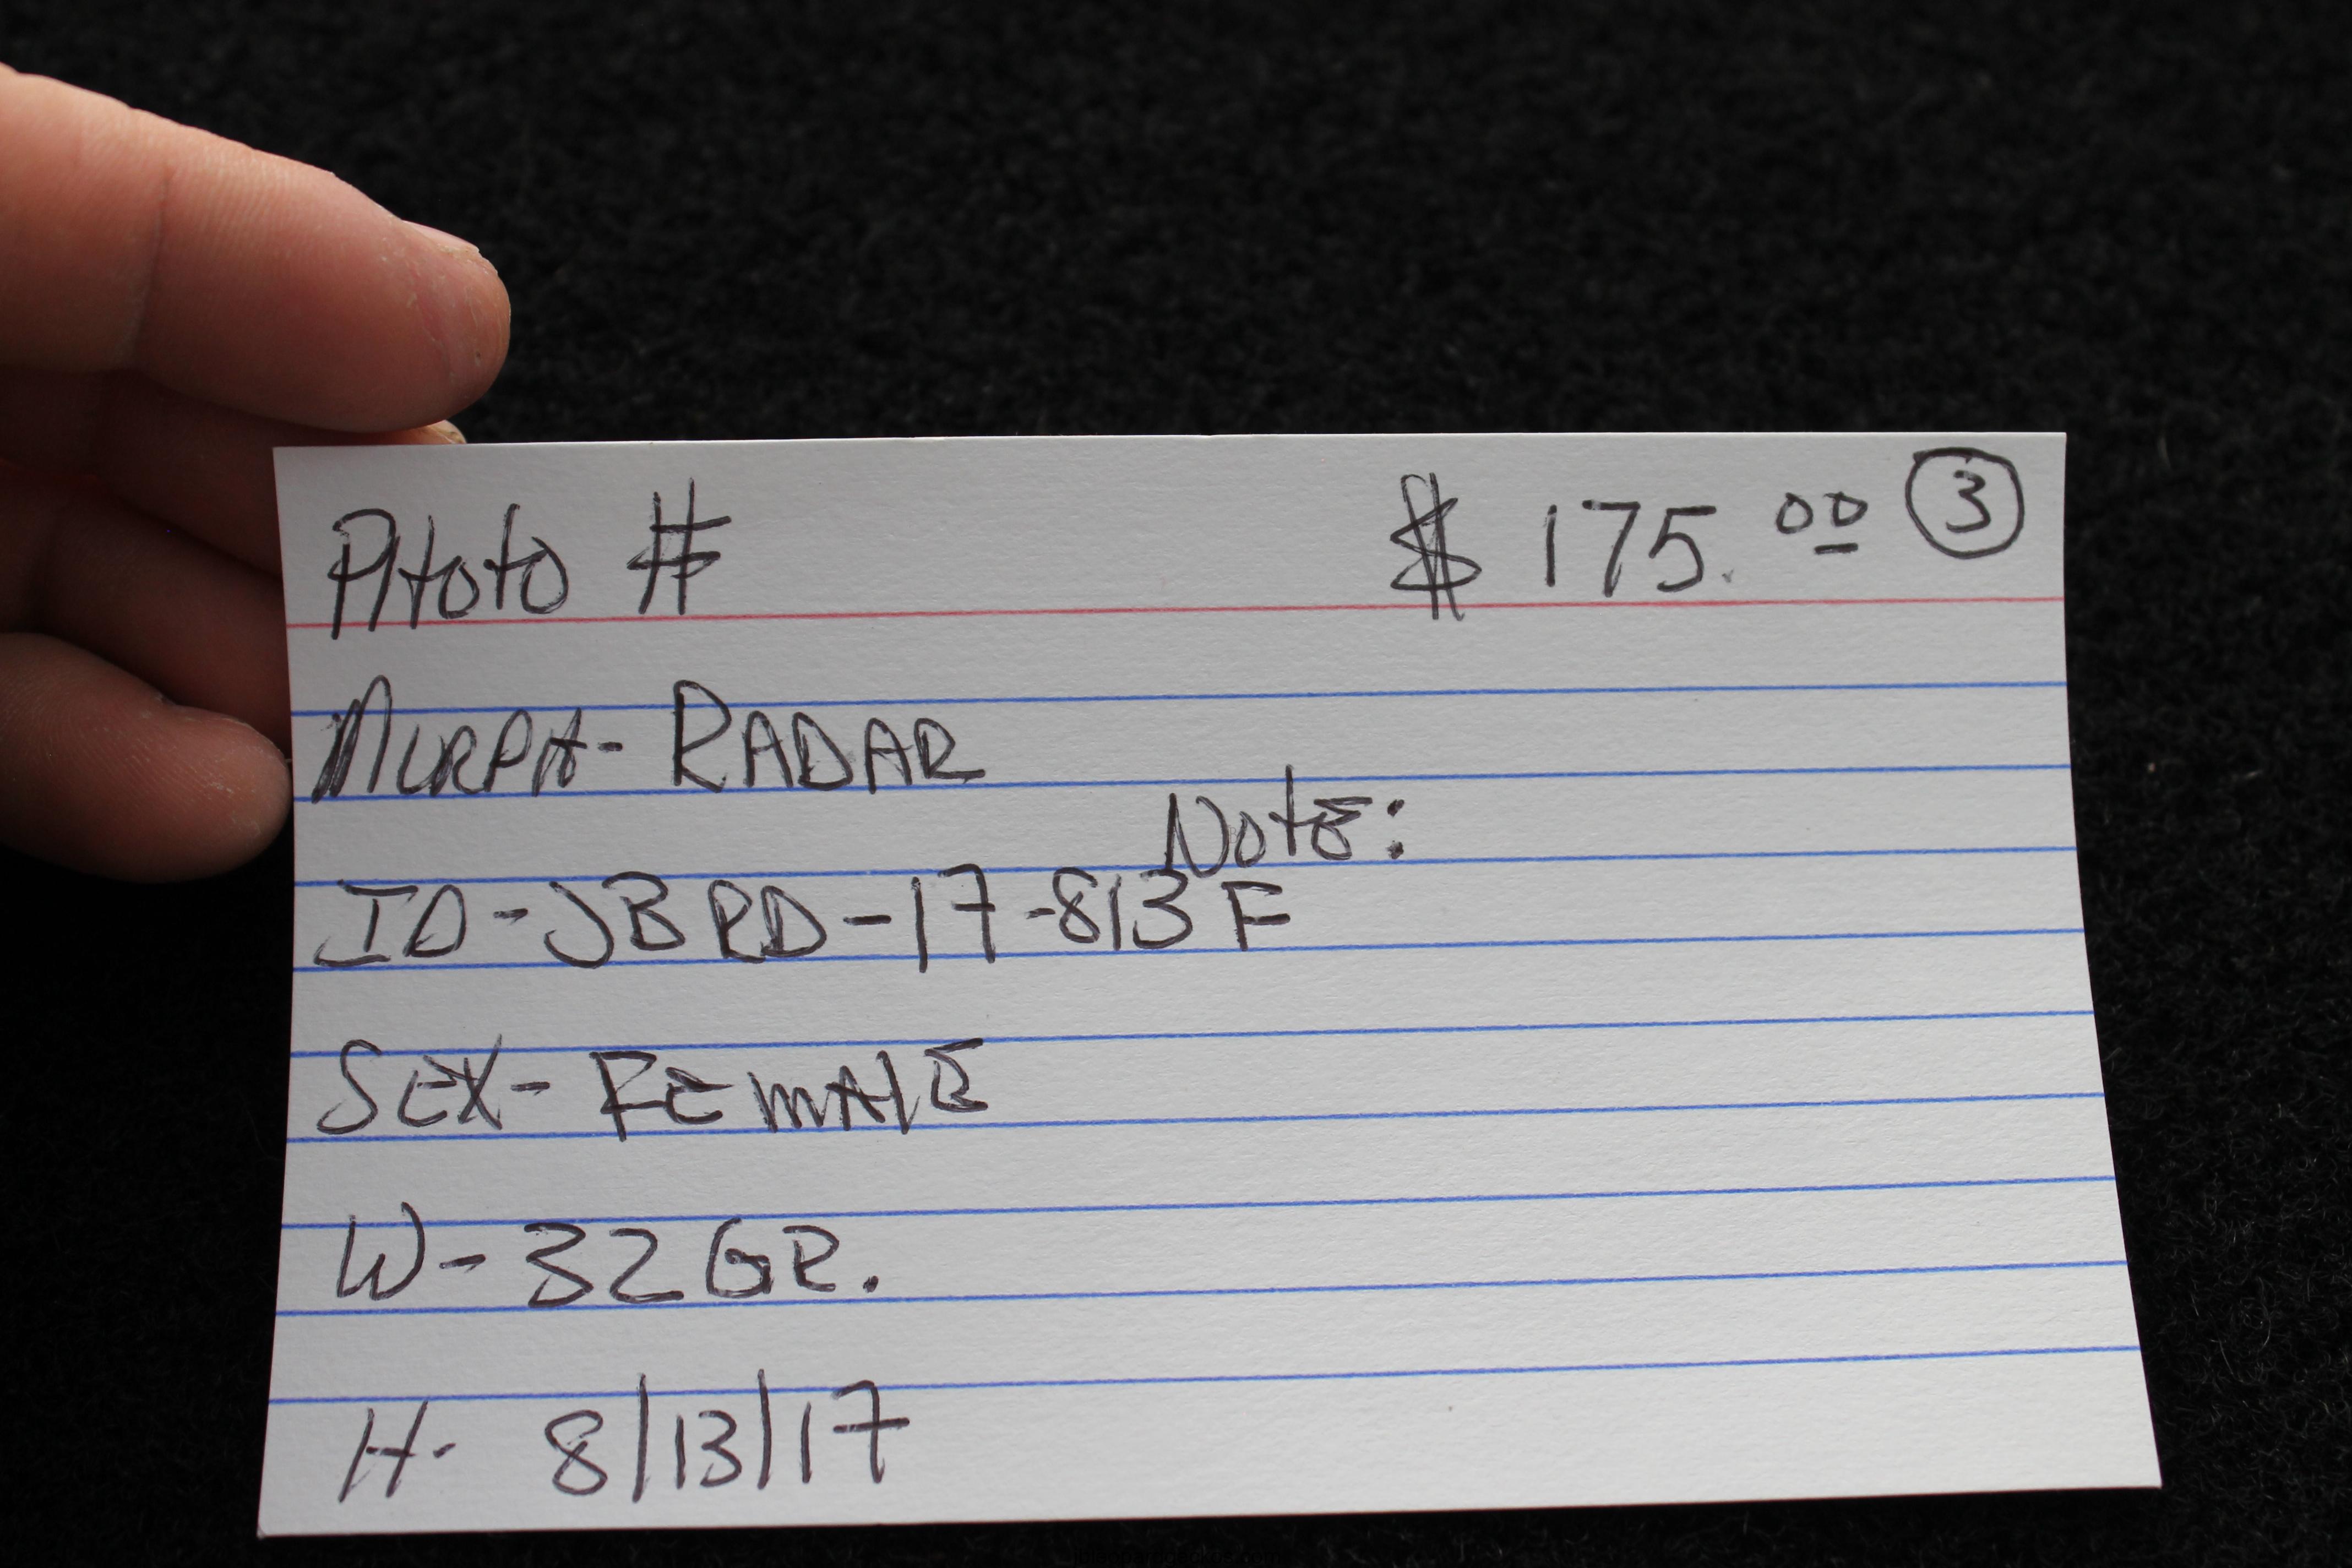 Photo # $ 175.00 3
Murph - RADAR
Note:
ID - JBRD - 17 - 813 F
SEX - FEMALE
W - 32 GR.
H - 8/13/17